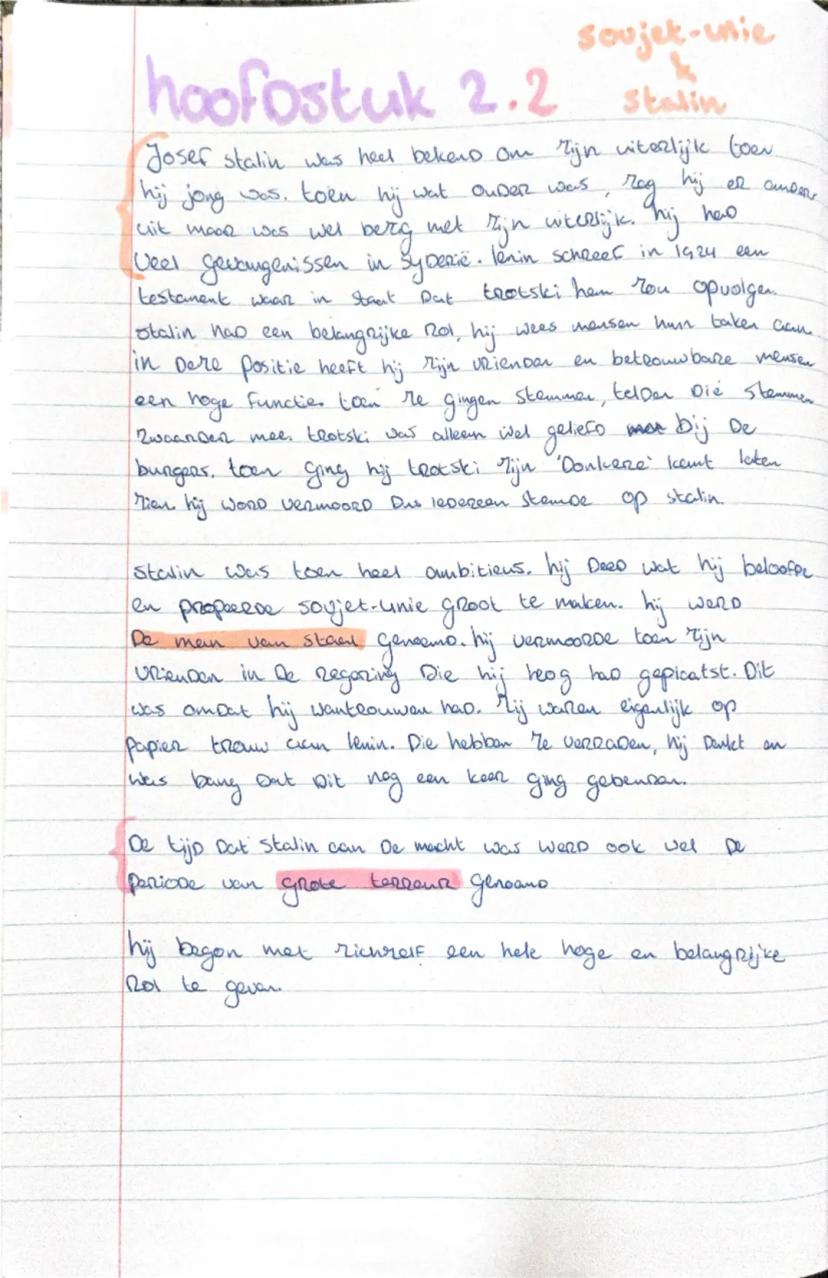 sovjet-unie
&
stalin
hoofdstuk 2.2
Josef stalin was heel bekend om zijn uiterlijk toen
hij jong was. toen hij wat ouder was, zag hij er anders
uit maar was wel bezig met zijn uiterlijk. hij had
veel gevangenissen in syberië. lenin schreef in 1924 een
testament waar in staat dat trotski hem zou opvolgen.
stalin had een belangrijke rol, hij wees mensen hun taken aan.
in deze positie heeft hij zijn vrienden en betrouwbare mensen
een hoge functie. toen ze gingen stemmen, telden die stemmen
zwaarder mee. trotski was alleen wel geliefd bij de
burgers. toen ging hij trotski zijn 'donkere' kant laten
zien. hij word vermoord dus iedereen stemde op stalin.
stalin was toen heel ambitieus. hij deed wat hij beloofde
en probeerde sovjet-unie groot te maken. hij werd
de man van staal genoemd. hij vermoorde toen zijn
vrienden in de regering die hij hoog had geplaatst. Dit
was omdat hij wantrouwen had. zij waren eigenlijk op
papier trouw aan lenin. Die hebben ze verraden, hij denkt en
was bang dat dit nog een keer ging gebeuren.
De tijd dat stalin aan de macht was werd ook wel de
periode van grote terreur genoemd
hij begon met zichzelf een hele hoge en belangrijke
rol te geven.